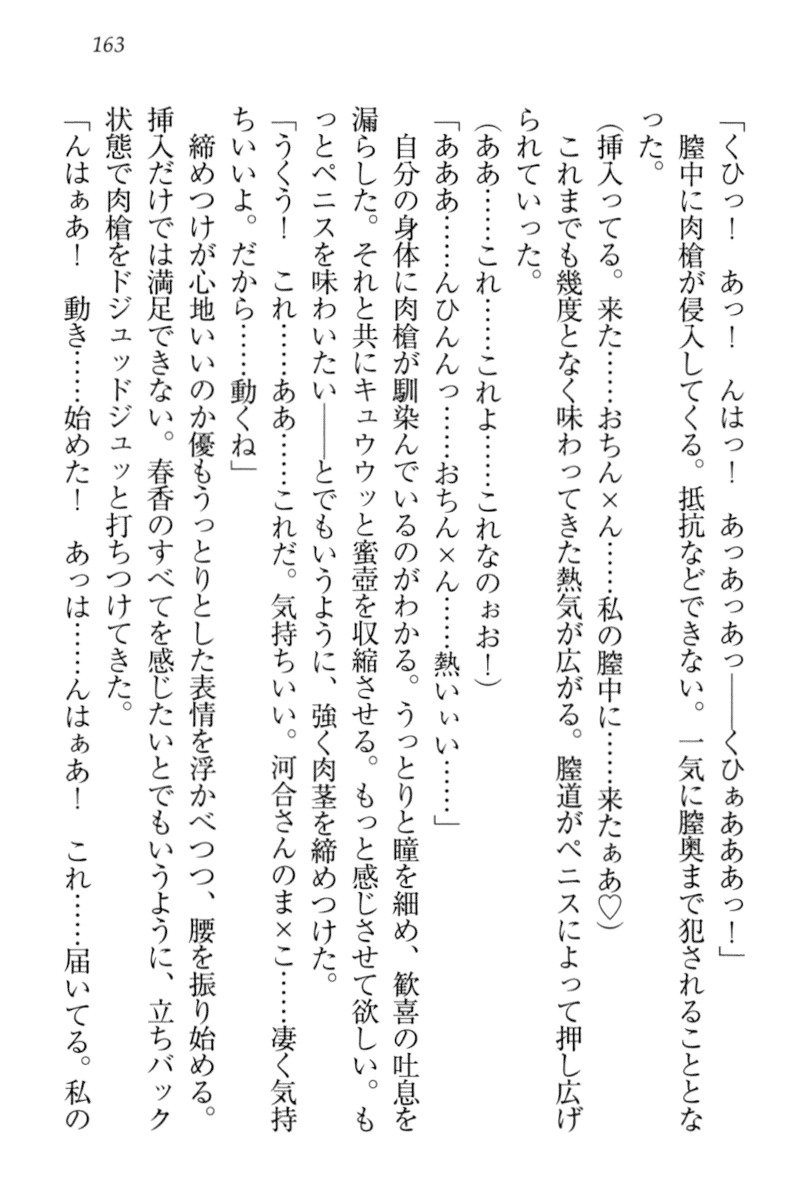 163
「くひっ！　あっ！　んはっ！　あっあっあっ――くひぁあああっ！」
　膣中に肉槍が侵入してくる。抵抗などできない。一気に膣奥まで犯されることとな
った。
（挿入ってる。来た……おちん×ん……私の膣中に……来たぁあ♡）
　これまでも幾度となく味わってきた熱気が広がる。膣道がペニスによって押し広げ
られていった。
（ああ……これ……これよ……これなのぉお！）
「あああ……んひんんっ……おちん×ん……熱いぃい……」
　自分の身体に肉槍が馴染んでいるのがわかる。うっとりと瞳を細め、歓喜の吐息を
漏らした。それと共にキュウウッと蜜壺を収縮させる。もっと感じさせて欲しい。も
っとペニスを味わいたい――とでもいうように、強く肉茎を締めつけた。
「うくう！　これ……ああ……これだ。気持ちいい。河合さんのま×こ……凄く気持
ちいいよ。だから……動くね」
　締めつけが心地いいのか優もうっとりとした表情を浮かべつつ、腰を振り始める。
挿入だけでは満足できない。春香のすべてを感じたいとでもいうように、立ちバック
状態で肉槍をドジュッドジュッと打ちつけてきた。
「んはぁあ！　動き……始めた！　あっは……んはぁあ！　これ……届いてる。私の